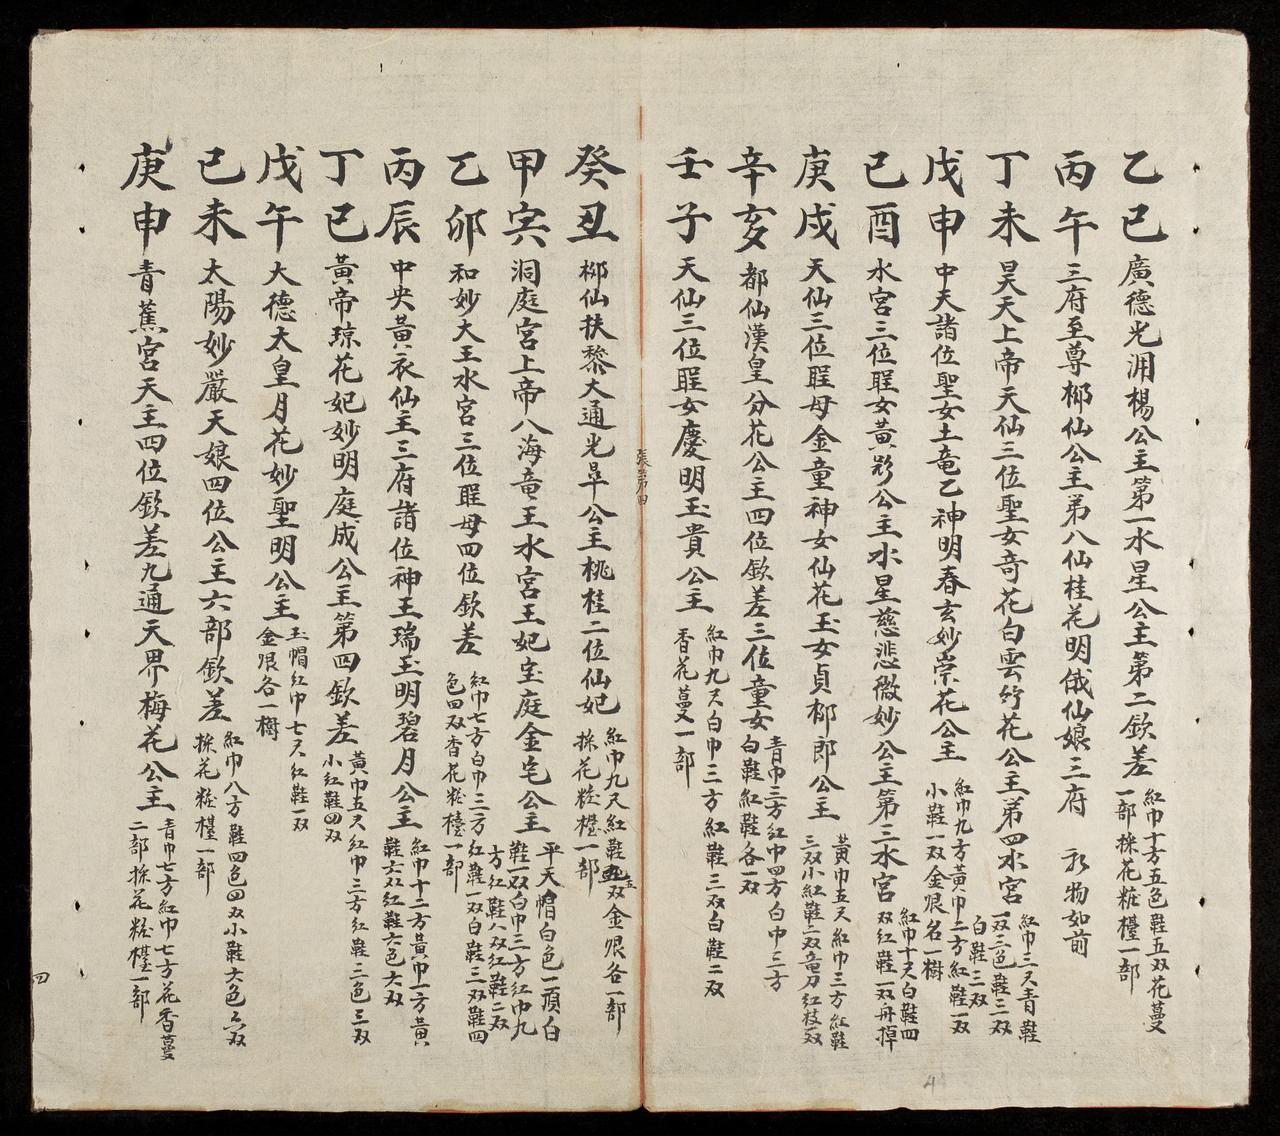 乙巳 廣德光淵楊公主第一水星公主第二欽差 紅巾十方五色鞋五双花蔓一部採花粧檯一部
丙午 三府至尊桺仙公主第八仙桂花明俄仙娘三府 礼物如前
丁未 昊天上帝天仙三位聖女竒花白雲竹花公主第四水宮 紅巾三尺青鞋一双三色鞋三双白鞋三双
戊申 中天諸位聖女土竜乙神明春玄妙崇花公主 紅巾九方黃巾二方紅鞋一双小鞋一双金限名一樹
己酉 水宮三位聖女黃彩公主水星慈悲微妙公主第三水宮 紅巾十尺白鞋四双紅鞋一双舟掉
庚戌 天仙三位聖母金童神女仙花玉女貞桺郎公主 黃巾五尺紅巾三方紅鞋三双小紅鞋二双竜刀紅枝一双
辛亥 都仙漢皇分花公主四位欽差三位童女 青巾三方紅巾四方白巾三方白鞋紅鞋各一双
壬子 天仙三位聖女慶明玉貴公主 紅巾九尺白巾三方紅鞋三双白鞋二双香花蔓一部
張第四
癸丑 桺仙扶黎大通光皐公主桃桂二位仙妃 紅巾九尺紅鞋五双金限各一部採花粧檯一部
甲寅 洞庭宮上帝八海竜王水宮王妃宝庭金宅公主 平天帽白色一頂白鞋一双白巾三方紅巾九方紅鞋八双紅鞋二双
乙卯 和妙大王水宮三位聖母四位欽差 紅巾七方白巾三方紅鞋一双白鞋三双鞋四色四双香花粧檯一部
丙辰 中央黃衣仙主三府諸位神王瑞玉明碧月公主 紅巾十二方黃巾一方黃鞋六双紅鞋六色六双
丁巳 黃帝琼花妃妙明庭成公主第四欽差 黃巾五尺紅巾三方紅鞋三色三双小紅鞋四双
戊午 大德太皇月花妙聖明公主 玉帽紅巾七尺紅鞋一双金限各一樹
己未 太陽妙嚴天娘四位公主六部欽差 紅巾八方鞋四色四双小鞋六色六双採花粧檯一部
庚申 青蕉宮天主四位欽差九通天界梅花公主 青巾七方紅巾七方花香蔓二部採花粧檯一部
四
4